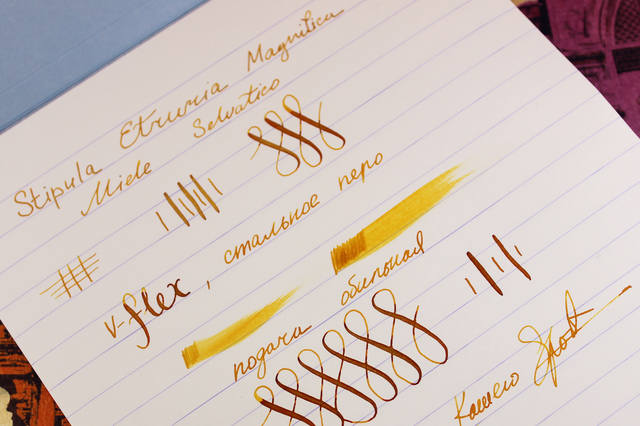 Stipula Etruria Magnifica
Miele Selvatico
V-flex, стальное перо
подача обильная